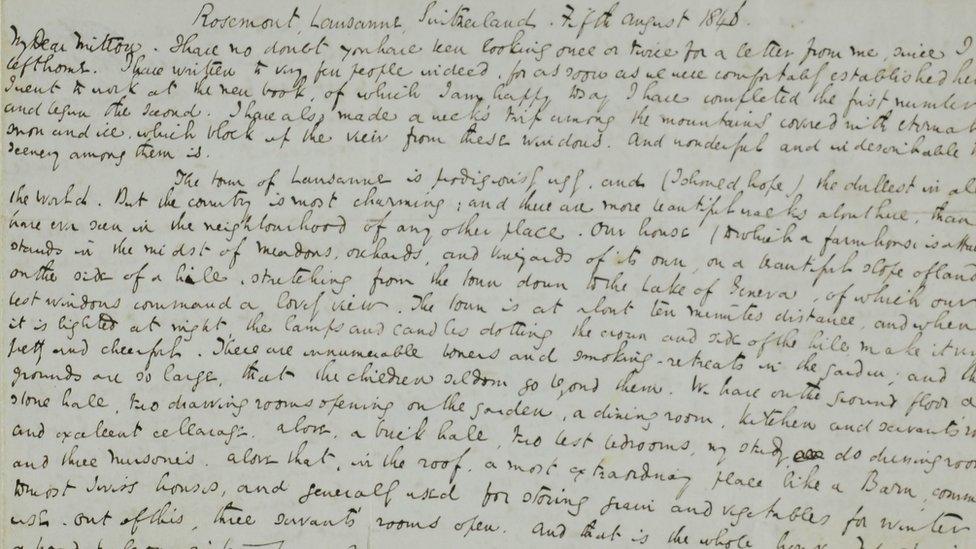 Rosemont, Lausanne, Switzerland. Fifth August 1846.
My Dear Mitton. I have no doubt you have been looking once or twice for a letter from me, since I
left home. I have written to very few people indeed, for as soon as we were comfortably established he
I went to work at the new book, of which I am happy to say I have completed the first number
and begun the second. I have also made a week's trip among the mountains covered with eternal
snow and ice, which block up the view from these windows. And wonderful and indescribable t
scenery among them is.
The town of Lausanne is prodigiously ugly, and (I should hope) the dullest in al
the world. But the country is most charming; and there are more beautiful walks about here, than
have ever seen in the neighbourhood of any other place. Our house (to which a farmhouse is atta
stands in the midst of meadows, orchards, and vineyards of its own, on a beautiful slope of land
on the side of a hill, stretching from the town down to the Lake of Geneva, of which our
best windows command a lovely view. The town is at about ten minutes distance, and when
it is lighted at night the lamps and candles dotting the crown and side of the hill make it ve
pretty and cheerful. There are innumerable bowers and smoking-retreats in the garden; and th
grounds are so large, that the children seldom go beyond them. We have on the ground floor a
stone hall, two drawing rooms opening on the garden, a dining room, kitchen and servants' ro
and excellent cellarage, above, a brick hall, two best bedrooms, my study do dressing room
and three nurseries. above that, in the roof, a most extraordinary place like a Barn, comm
to most Swiss houses, and generally used for storing grain and vegetables for winter
use. Out of this, three servants' rooms open. And that is the whole house